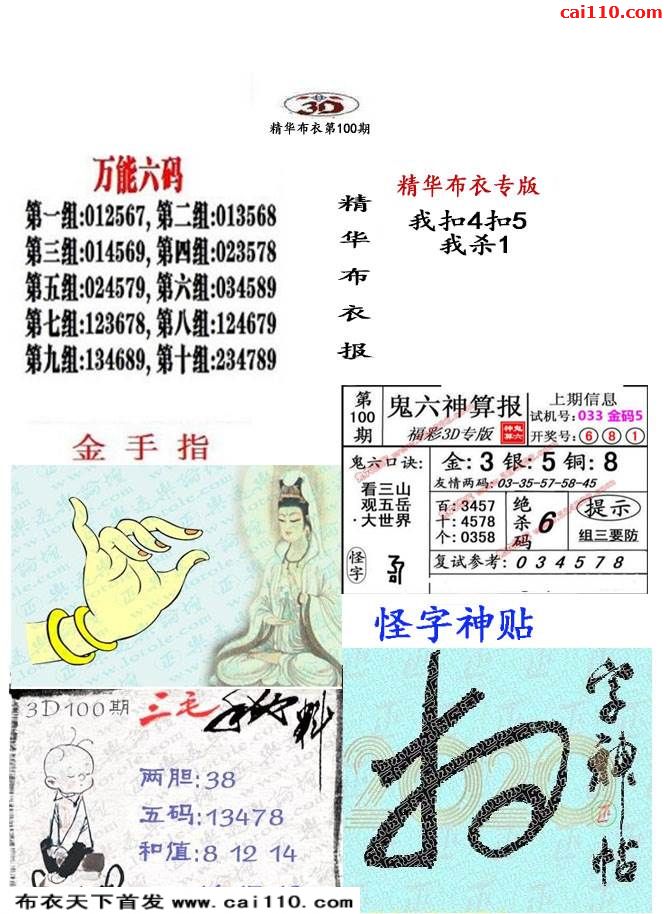 cai110.com
3D
精华布衣第100期
万能六码
第一组:012567, 第二组:013568
第三组:014569, 第四组:023578
第五组:024579, 第六组:034589
第七组:123678, 第八组:124679
第九组:134689, 第十组:234789
精华布衣报
精华布衣专版
我扣4扣5
我杀1
金手指
第100期
鬼六神算报
福彩3D专版
上期信息
试机号:033 金码5
开奖号:681
鬼六口诀:
看三山
观五岳
大世界
金:3 银:5 铜:8
友情两码:03-35-57-58-45
百:3457
十:4578
个:0358
绝杀码 6
提示
组三要防
怪字
复试参考:034578
怪字神贴
字神帖
2020
3D100期 三毛
料
两胆:38
五码:13478
和值:8 12 14
布衣天下首发 www.cai110.com